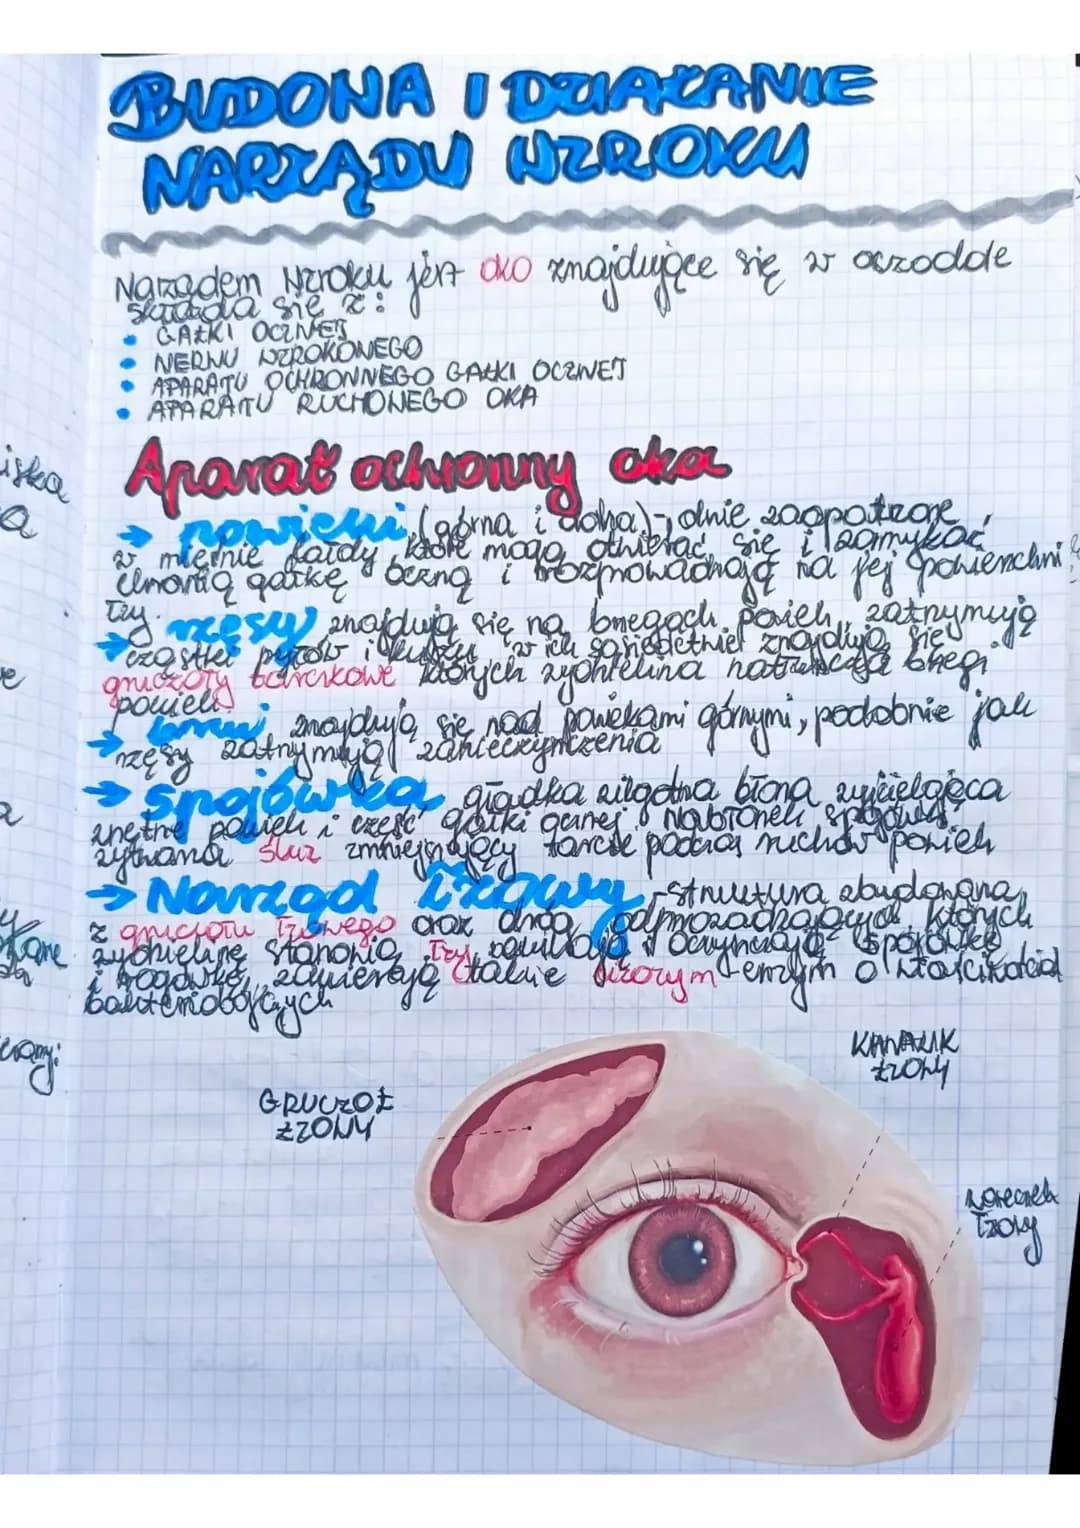 BUDOWA I DZIAŁANIE
NARZĄDU WZROKU
Narządem wzroku jest oko znajdujące się w oczodole
składa się z:
• GAŁKI OCZNEJ
• NERWU WZROKOWEGO
• APARATU OCHRONNEGO GAŁKI OCZNEJ
• APARATU RUCHOWEGO OKA
Aparat ochronny oka
→ powieki (górna i dolna) - dwie zaopatrzone
w mięśnie fałdy, które mogą otwierać się i zamykać
chronią gałkę oczną i rozprowadzają na jej powierzchni
łzy.
→ rzęsy znajdują się na brzegach powiek, zatrzymują
cząstki pyłów i kurzu w ich sąsiedztwie znajdują się
gruczoły tarczkowe których wydzielina natłuszcza brzegi
powiek.
→ brwi znajdują się nad powiekami górnymi, podobnie jak
rzęsy zatrzymują zanieczyszczenia
→ spojówka gładka wilgotna błona wyścielająca
wnętrze powiek i część gałki ocznej Nabłonek spojówki
wytwarza śluz zmniejszający tarcie podczas ruchów powiek
→ Narząd łzowy - struktura zbudowana
z gruczołu łzowego oraz dróg odprowadzających których
wydzielinę stanowią łzy, nawilżają i oczyszczają spojówkę
i rogówkę, zawierają także lizozym - enzym o właściwościach
bakteriobójczych
KANALIK
ŁZOWY
GRUCZOŁ
ŁZOWY
woreczek
łzowy